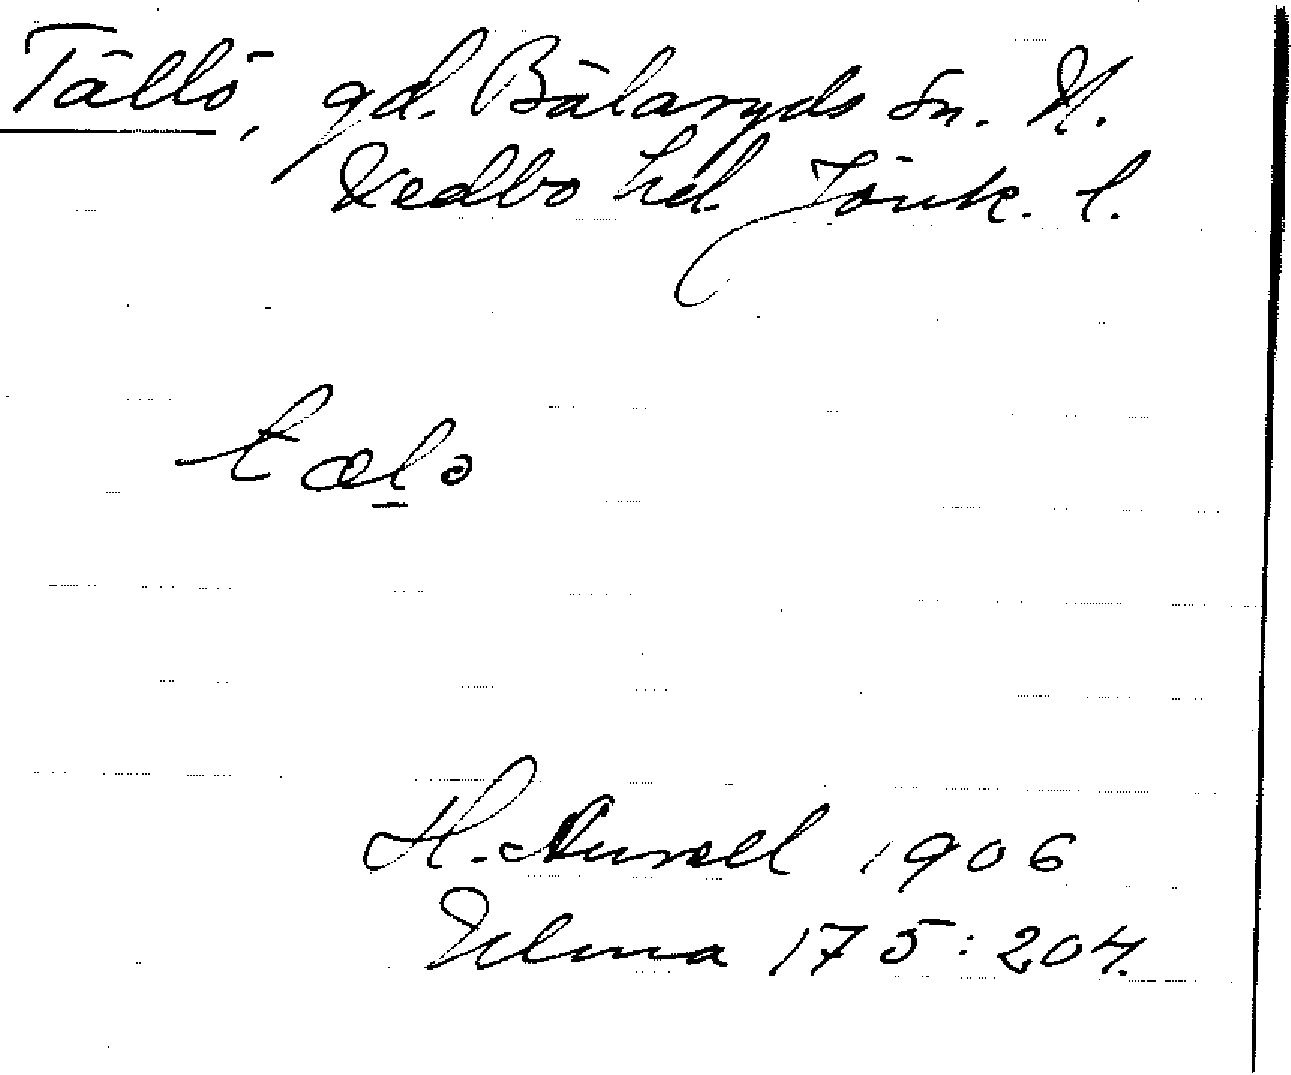 Tällö, gd. Bälaryds sn. N.
Vedbo hd. Jönk. l.
tælo
H. Aurell 1906
Ulma 175:204.